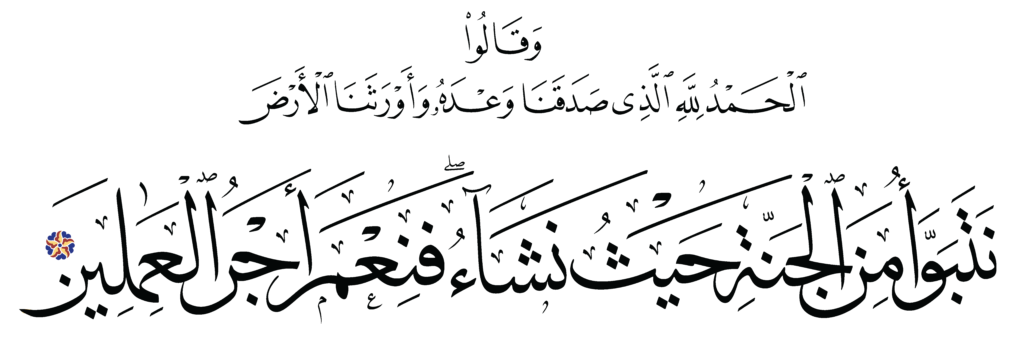 وَقَالُوا۟
ٱلْحَمْدُ لِلَّهِ ٱلَّذِى صَدَقَنَا وَعْدَهُۥ وَأَوْرَثَنَا ٱلْأَرْضَ
نَتَبَوَّأُ مِنَ ٱلْجَنَّةِ حَيْثُ نَشَآءُ ۖ فَنِعْمَ أَجْرُ ٱلْعَٰمِلِينَ